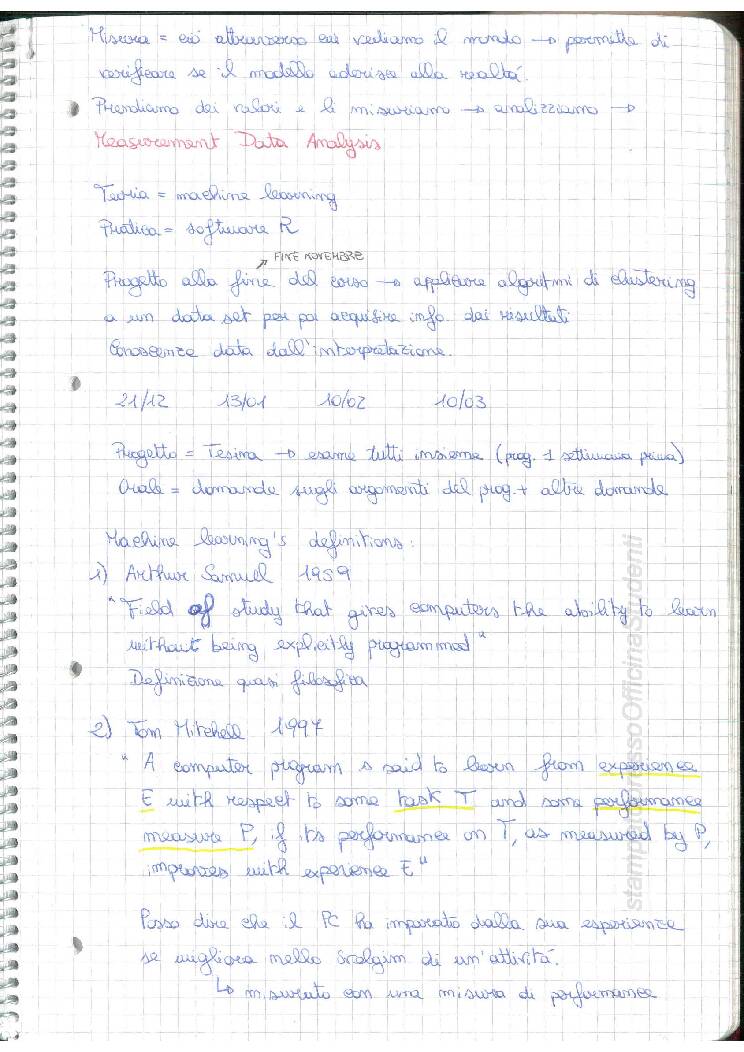 Misura = ciò attraverso cui vediamo il mondo → permette di
verificare se il modello aderisce alla realtà.
Prendiamo dei valori e li misuriamo → analizziamo →
Measurement Data Analysis
Teoria = machine learning
Pratica = software R
FINE NOVEMBRE
Progetto alla fine del corso → applicare algoritmi di clustering
a un data set per poi acquisire info. dai risultati
Conoscenza data dall'interpretazione.
21/12 13/01 10/02 10/03
Progetto = Tesina → esame tutti insieme (prog. 1 settimana prima)
Orale = domande sugli argomenti del prog. + altre domande
Machine learning's definitions:
1) Arthur Samuel 1959
"Field of study that gives computers the ability to learn
without being explicitly programmed"
Definizione quasi filosofica
2) Tom Mitchell 1997
"A computer program is said to learn from experience
E with respect to some task T and some performance
measure P, if its performance on T, as measured by P,
improves with experience E"
Posso dire che il PC ha imparato dalla sua esperienza
se migliora nello svolgim di un'attività.
↳ misurato con una misura di performance
stampatopressoOfficinaStudenti